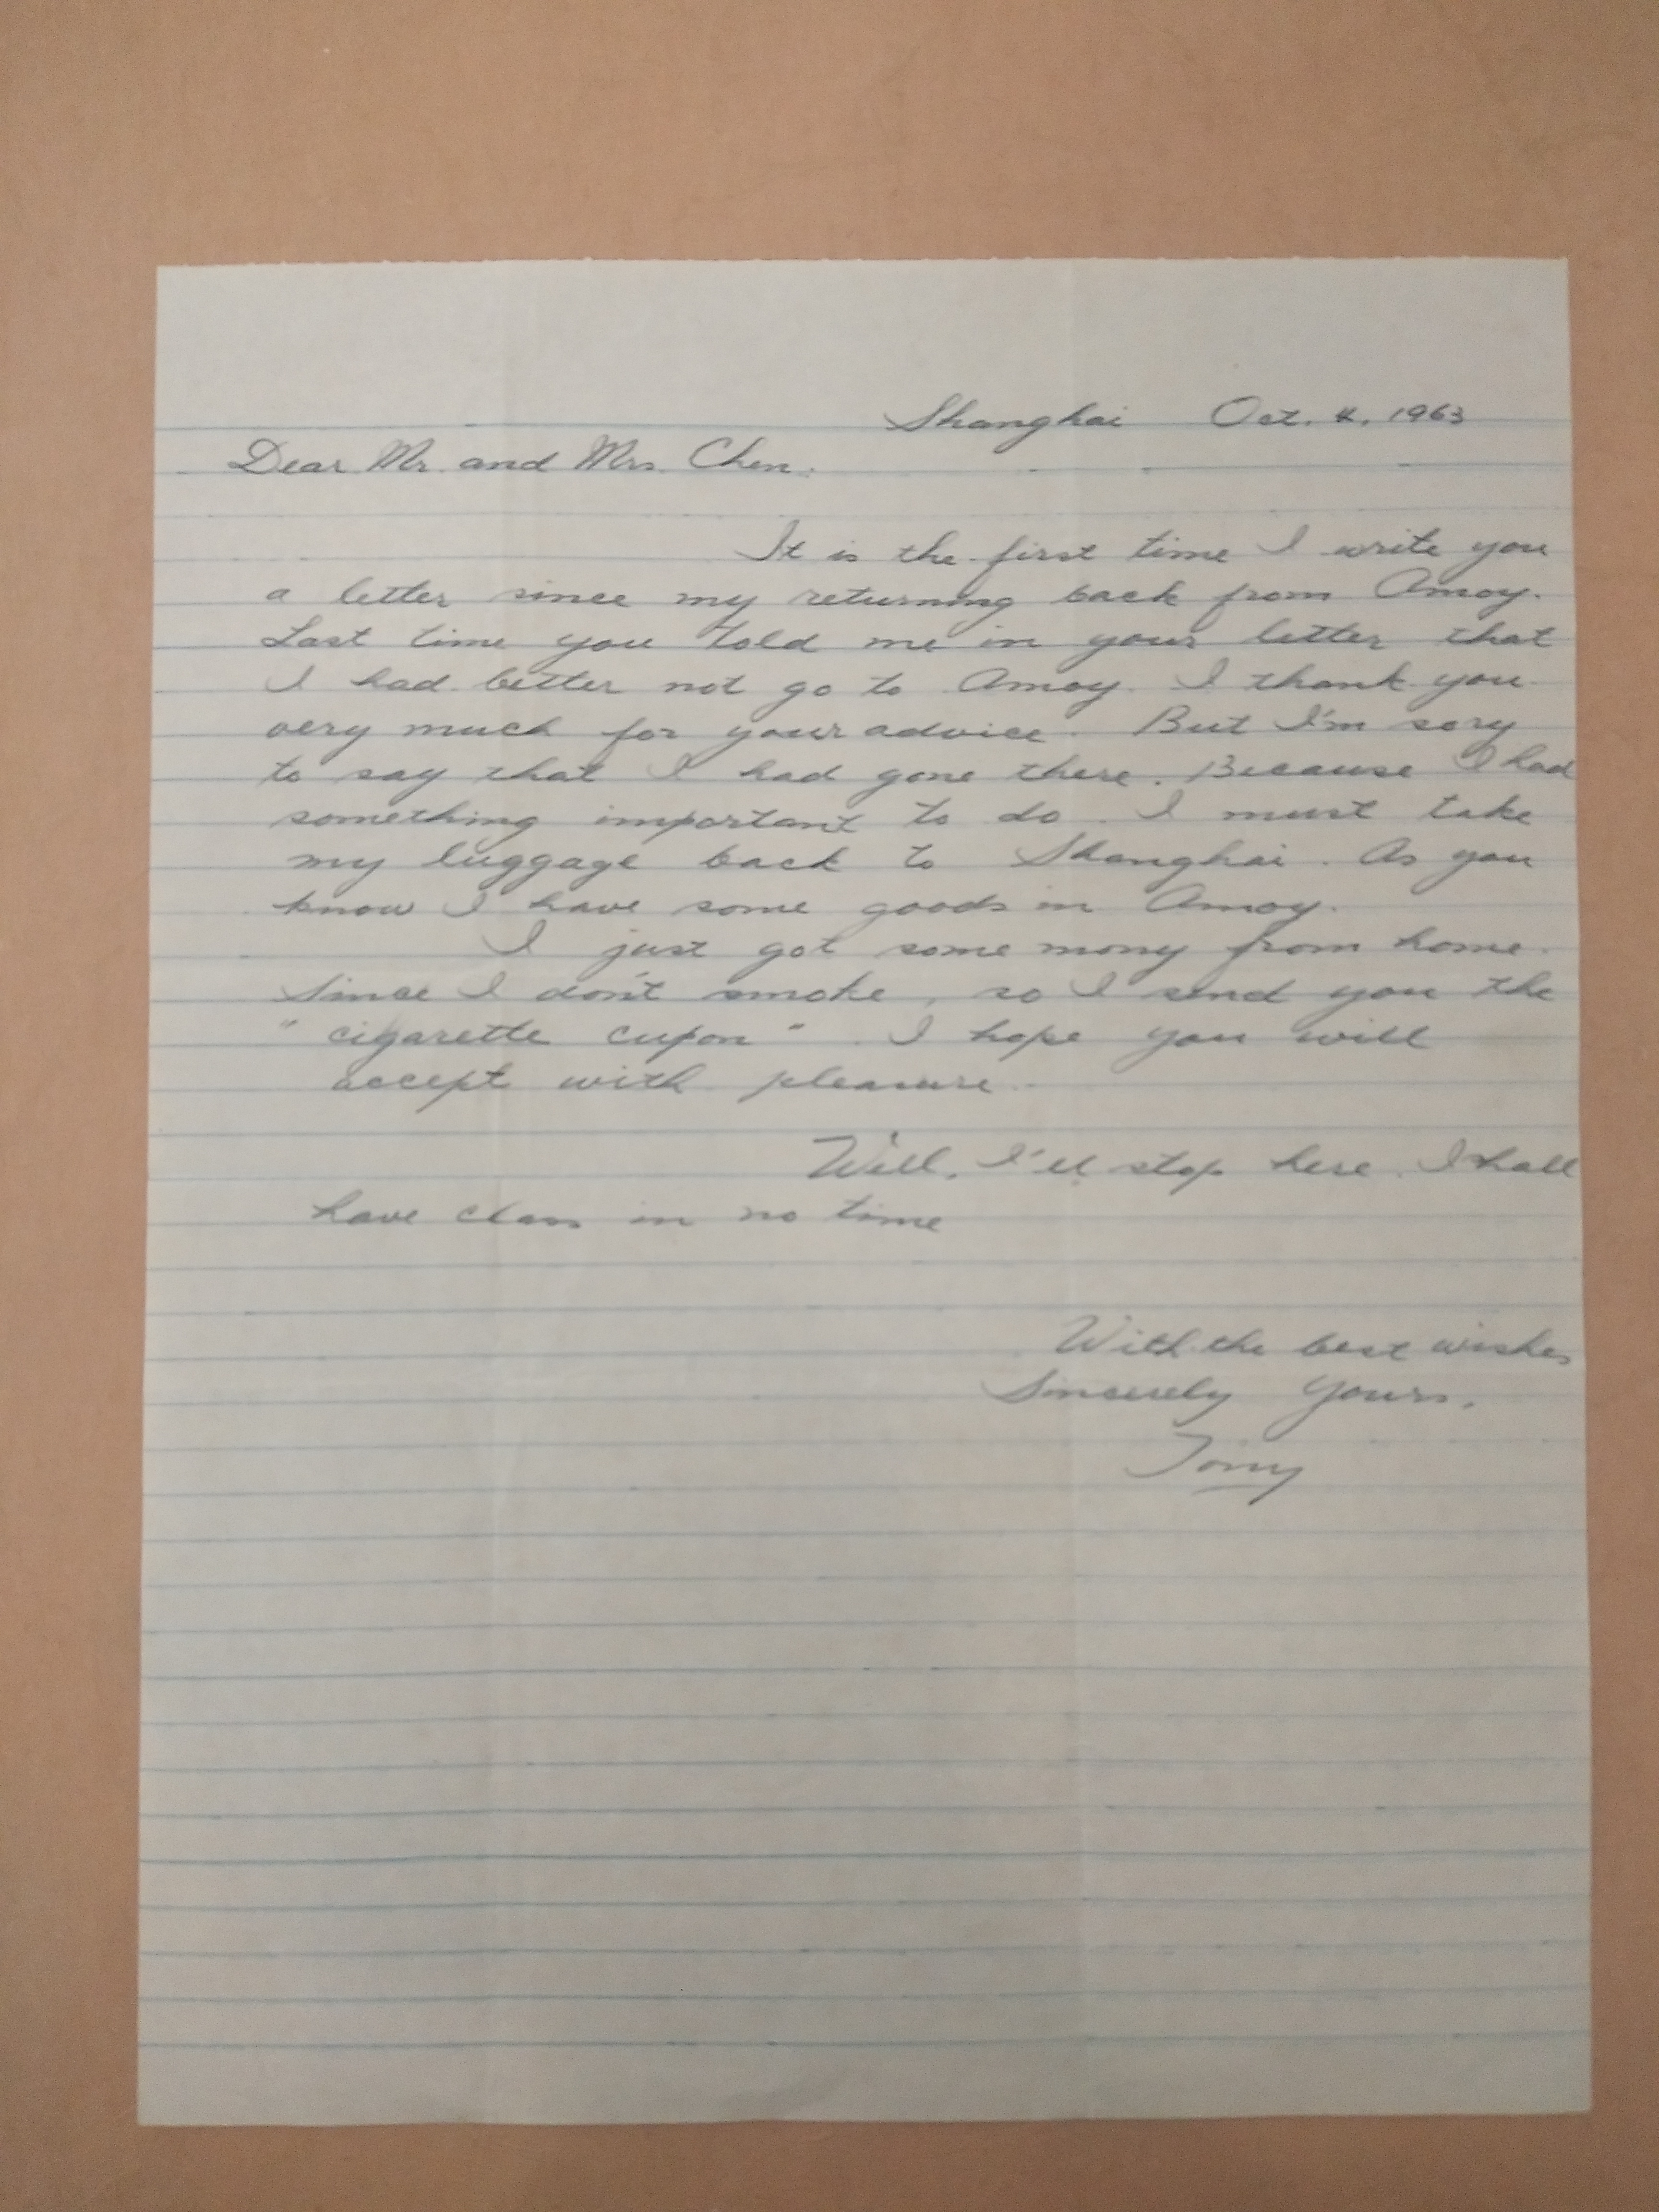 Shanghai Oct. 4, 1963
Dear Mr. and Mrs. Chen:
It is the first time I write you
a letter since my returning back from Amoy.
Last time you told me in your letter that
I had better not go to Amoy. I thank you
very much for your advice. But I'm sory
to say that I had gone there. Because I had
something important to do. I must take
my luggage back to Shanghai. As you
know I have some goods in Amoy.
I just got some mony from home.
Since I don't smoke, so I send you the
"cigarette cupon". I hope you will
accept with pleasure.
Well, I'll stop here. I shall
have class in no time
With the best wishes
Sincerely yours,
Tony